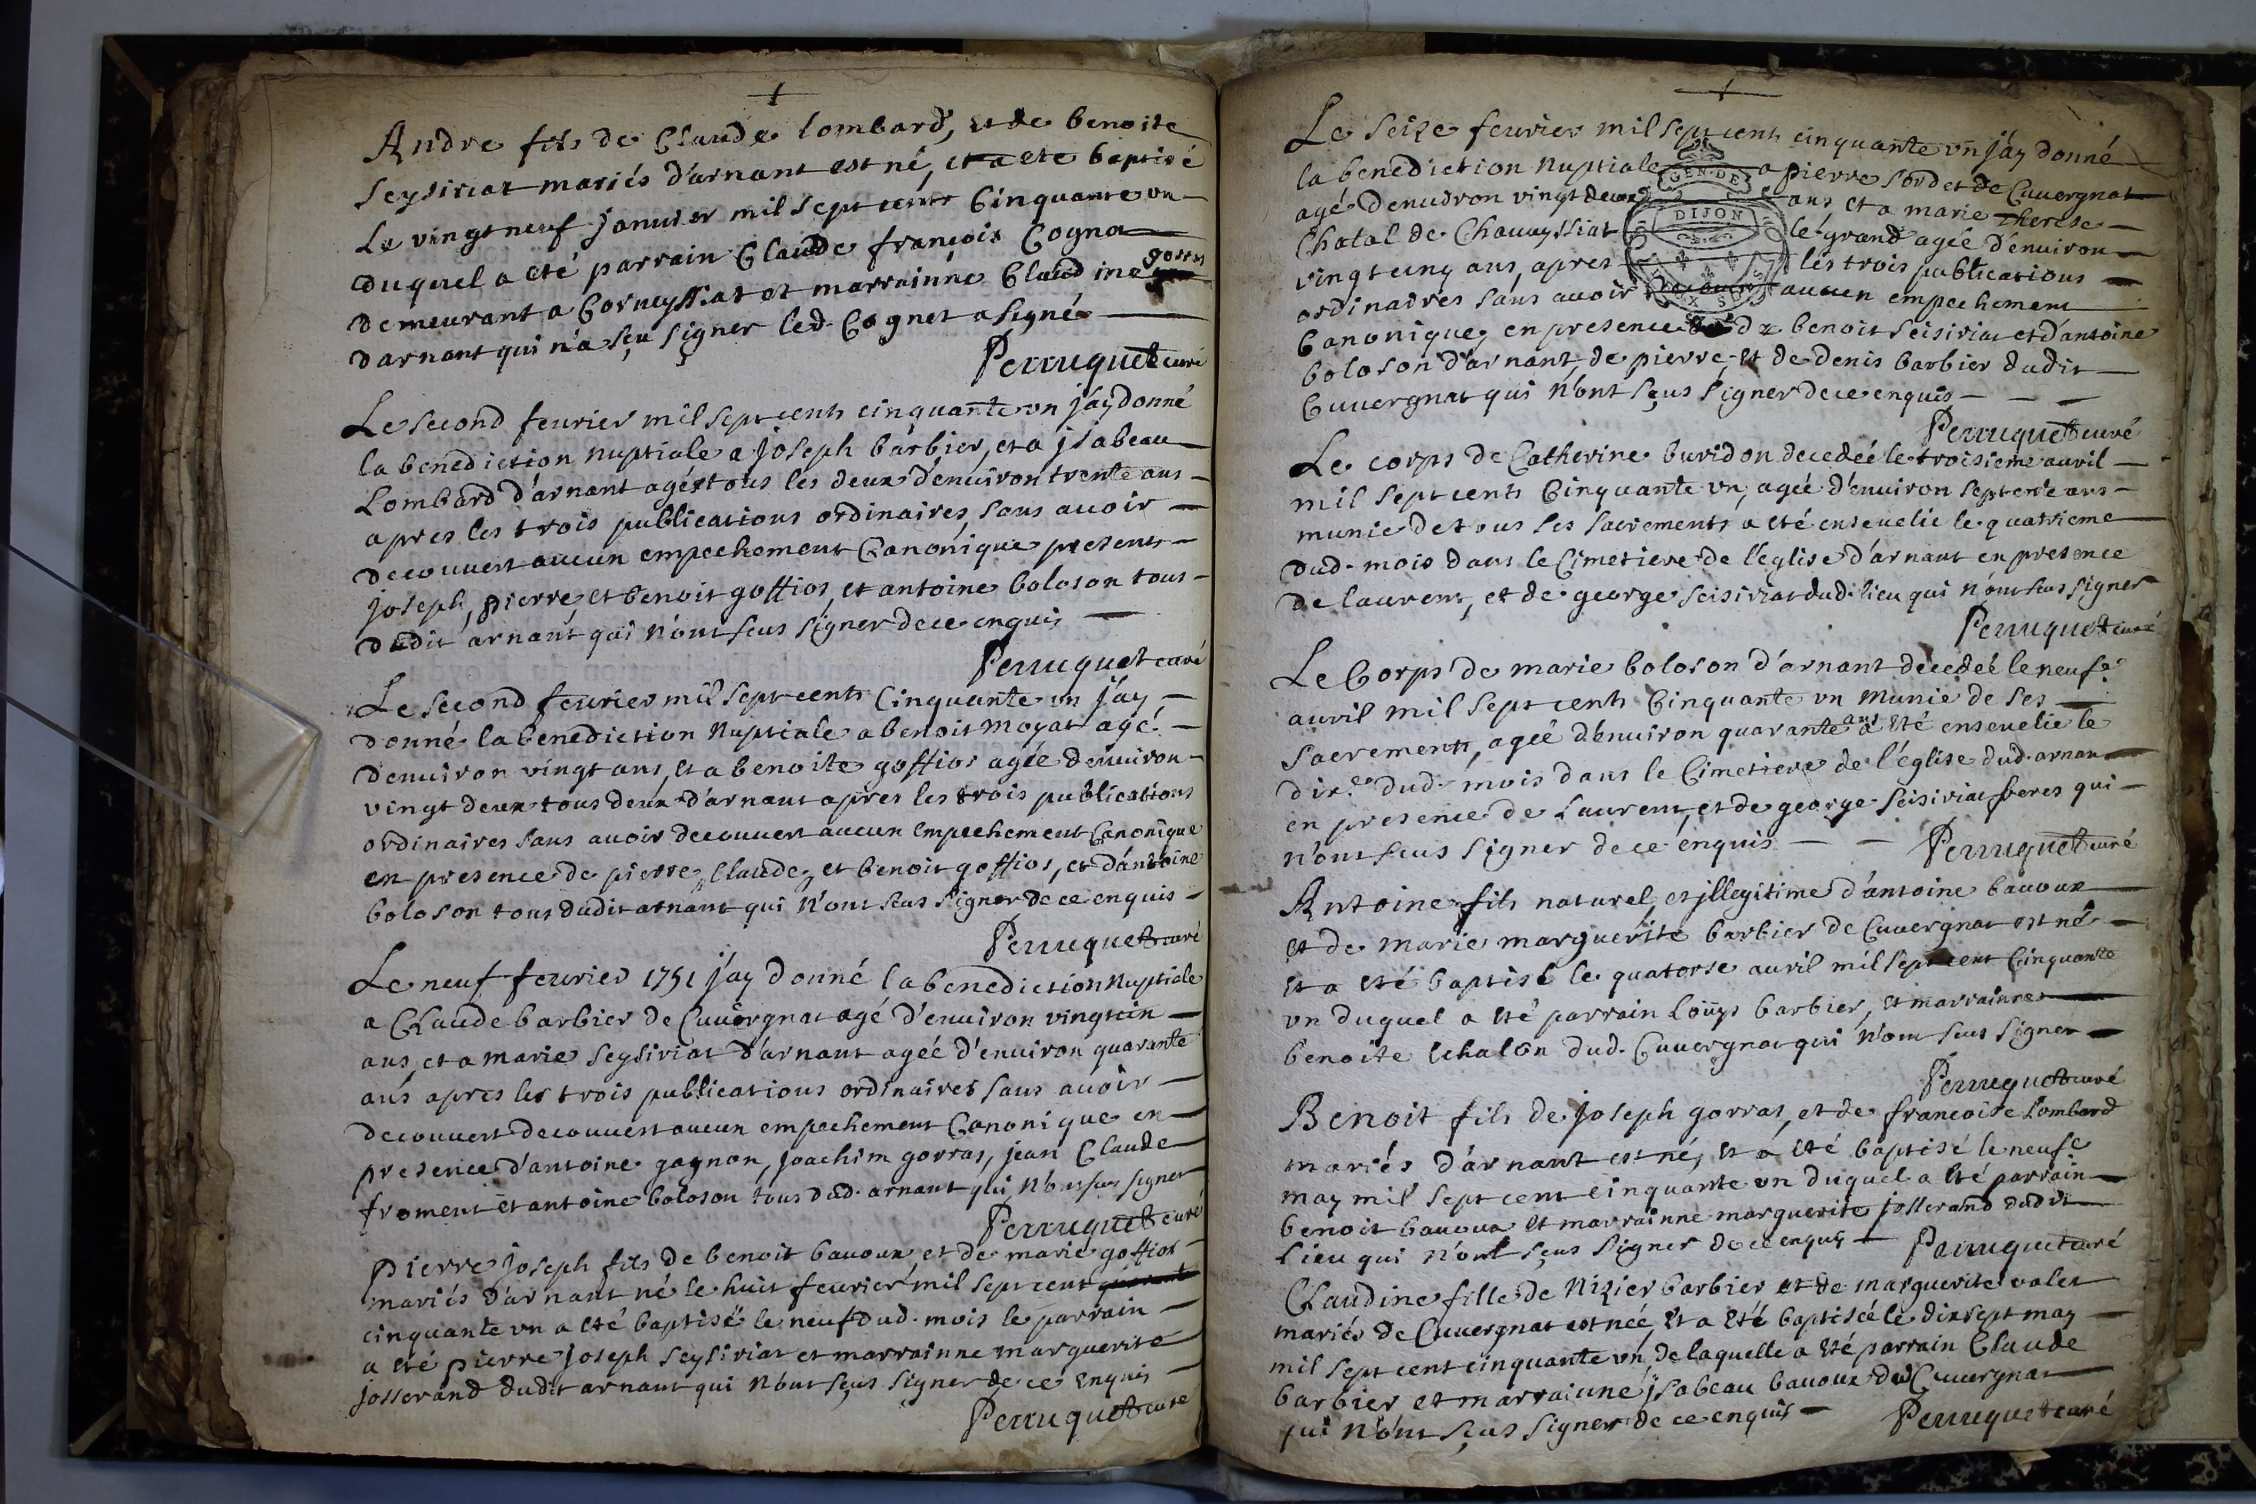 Andre fils de Claude lombard, et de benoite
Seysiriat mariés d'arnant est né, et a eté baptisé
Le vingt neuf janvier mil sept cents Cinquante un
duquel a eté parrain Claude françois Cogna
demeurant a Corveyssiat et marrainne Claudine gorras
d'arnant qui n'a sçu signer led. Cognet a signé
Perruquet curé
Le second feurier mil sept cents cinquante un j'ay donné
la benediction nuptiale a joseph barbier, et a jsabeau
Lombard d'arnant agés tous les deux d'enuiron trente ans
apres les trois publications ordinaires, sans auoir
decouuert aucun empechement Canonique presents
joseph, pierre, et benoit goffios, et antoine boloson tous
dudit arnant qui n'ont seus signer de ce enquis
Perruquet curé
Le second feurier mil sept cents Cinquante un j'ay
donné la benediction Nuptiale a benoit moyat agé
denuiron vingt ans, et a benoite goffios agée denuiron
vingt deux tous deux d'arnant apres les trois publications
ordinaires sans auoir decouuert aucun empechement Canonique
en presence de pierre, Claude, et benoit goffios, et d'antoine
boloson tous dudit arnant qui n'ont seus signer de ce enquis
Perruquet curé
Le neuf feurier 1751 j'ay donné la benediction Nuptiale
a Claude barbier de Cuuergnat agé d'enuiron vingt cin
ans, et a marie Seysiriat d'arnant agée d'enuiron quarante
ans apres les trois publications ordinaires sans auoir
decouuert decouuert aucun empechement Canonique en
presence d'antoine gagnon, joachim gorras, jean Claude
froment et antoine boloson tous dud. arnant qui n'ont seus signer
Perruquet curé
Pierre joseph fils de benoit bauoux et de marie goffios
mariés d'arnant né le huit feurier mil sept cent quarante
cinquante un a eté baptisé le neuf dud. mois le parrain
a eté pierre joseph Seysiriat et marrainne marguerite
josserand dudit arnant qui n'ont sçus signer de ce enquis
Perruquet curé
Le seize feurier mil sept cents cinquante un j'ay donné
la benediction Nuptiale a pierre Sordet de Cuuergnat
agé denuiron vingt deux ans et a marie therese
Chatal de Chauuyssiat le grand agée d'enuiron
vingt cinq ans, apres les trois publications
ordinaires sans auoir aucun empechement
Canonique, en presence de benoit Seisiriat et d'antoine
boloson d'arnant, de pierre, et de denis barbier dudit
Cuuergnat qui n'ont sçus signer de ce enquis
GEN. DE
DIJON
Perruquet curé
Le corps de Catherine buridon decedée le troisieme auril
mil sept cents Cinquante un, agée d'enuiron septente ans
munie de tous ses sacrements a eté enseuelie le quatrieme
dud. mois dans le Cimetiere de l'église d'arnant en presence
de laurent, et de george Seisiriat dud. lieu qui n'ont seus signer
Perruquet curé
Le Corps de marie boloson d'arnant decedée le neufe.
auril mil sept cents Cinquante un munie de ses
sacrements, agée d'enuiron quarante ans a eté enseuelie le
dixe dud. mois dans le Cimetiere de l'église dud. arnan
en presence de Laurent, et de george Seisiriat freres qui
n'ont seus signer de ce enquis
Perruquet curé
Antoine fils naturel et jllegitime d'antoine bauoux
et de marie marguerite barbier de Cuuergnat est né
et a eté baptisé le quatorse auril mil sept cent Cinquante
un duquel a eté parrain Louys barbier, et marrainne
benoite Chalon dud. Cuuergnat qui n'ont seus signer
Perruquet curé
Benoit fils de joseph gorras, et de francoise Lombard
mariés d'arnant est né, et a eté baptisé le neufe
may mil sept cent cinquante un duquel a eté parrain
benoit bauoux et marrainne marguerite josserand dudit
lieu qui n'ont sçus signer de ce enquis Perruquet curé
Claudine fille de Nizier barbier et de marguerite valet
mariés de Cuuergnat est née, et a eté baptisée le dixsept may
mil sept cent cinquante un, de laquelle a eté parrain Claude
barbier et marrainne jsabeau bauoux dud Cuuergnat
qui n'ont sçus signer de ce enquis Perruquet curé